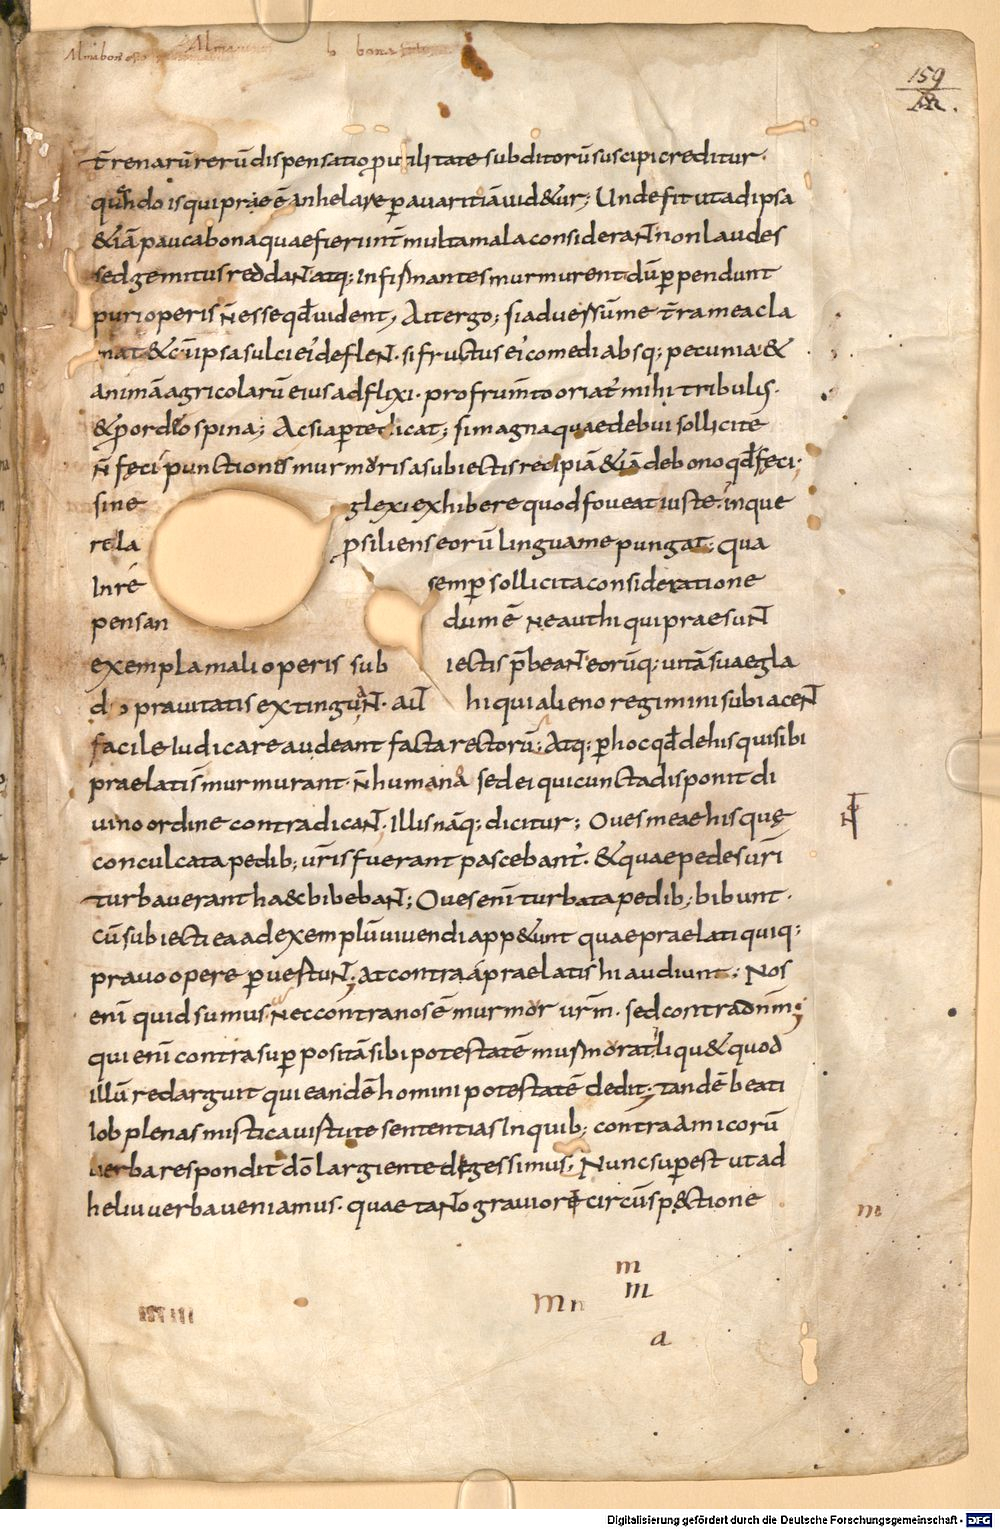 159
t̄renarū rerū dispensatio p̱ utilitate subditorū suscipi creditur·
qūando is qui prae ē anhelare ꝑ avaritiā vid&ur; Unde fit ut ad ipsa
&iā pauca bona quae fieruN̄ multa mala consideraNt non laudes
sed gemitus reddaNt atq; Infirmantes murmurent dū ꝑpendunt
puri operis n̄ esse qđ vident; Ait ergo; si adversū me t̄ra mea cla
mat & cū ipsa sulci ei' defleNt. si fructus ei' comedi absq; pecunia· &
animā agricolarū eius adflixi· pro frum̄to oriat' mihi tribulus·
& ꝓ ordeo spina; Ac si aꝑte dicat; si magna quae debui sollicite
n̄ feci punctiones murmoris a subiectis recipiā &iā de bono qđ feci;
sine glexi exhibere quod foveat iuste· in que
rela ꝓsiliens eorū lingua me pungat; Qua
In re semꝑ sollicita consideratione
pensan dum ē ne aut hi qui praesuNt
exempla mali operis sub iectis p̄beaNt eorūq; vitā suae gla
dio pravitatis extinguaNt· aut hi qui alieno regimini subiaceNt
facile Iudicare audeant facta rectorū; Atq; ꝑ hoc qđ de his qui sibi
praelati s̄ murmurant· n̄ humana sed ei qui cuncta disponit di
vino ordine contradicaNt. Illis nāq; dicitur; Oves meae his quę
conculcata pedib; vr̄is fuerant pascebant'. & quae pedes vr̄i
turbaverant haec bibebaNt; Oves enī turbata pedib; bibunt·
Cū subiecti ea ad exemplū vivendi app&unt quae praelati quiq;
pravo opere ꝑvertuNt; At contra a praelatis hi audiunt; Nos
enī quid sumus· nec contra nos ē murmor vr̄m· sed contra dn̄m;
qui enī contra superpositā sibi potestatē murmorat· liqu& quod
illū redarguit qui eandē homini potestatē dedit; tandē beati
Iob plenas mistica virtute sententias In quib; contra amicorū
verba respondit dō largiente degessimus; Nunc superest ut ad
heliu verba veniamus· quae taNto graviore circūsp&ctione
m
m
m
m n
a
Digitalisierung gefördert durch die Deutsche Forschungsgemeinschaft - DFG